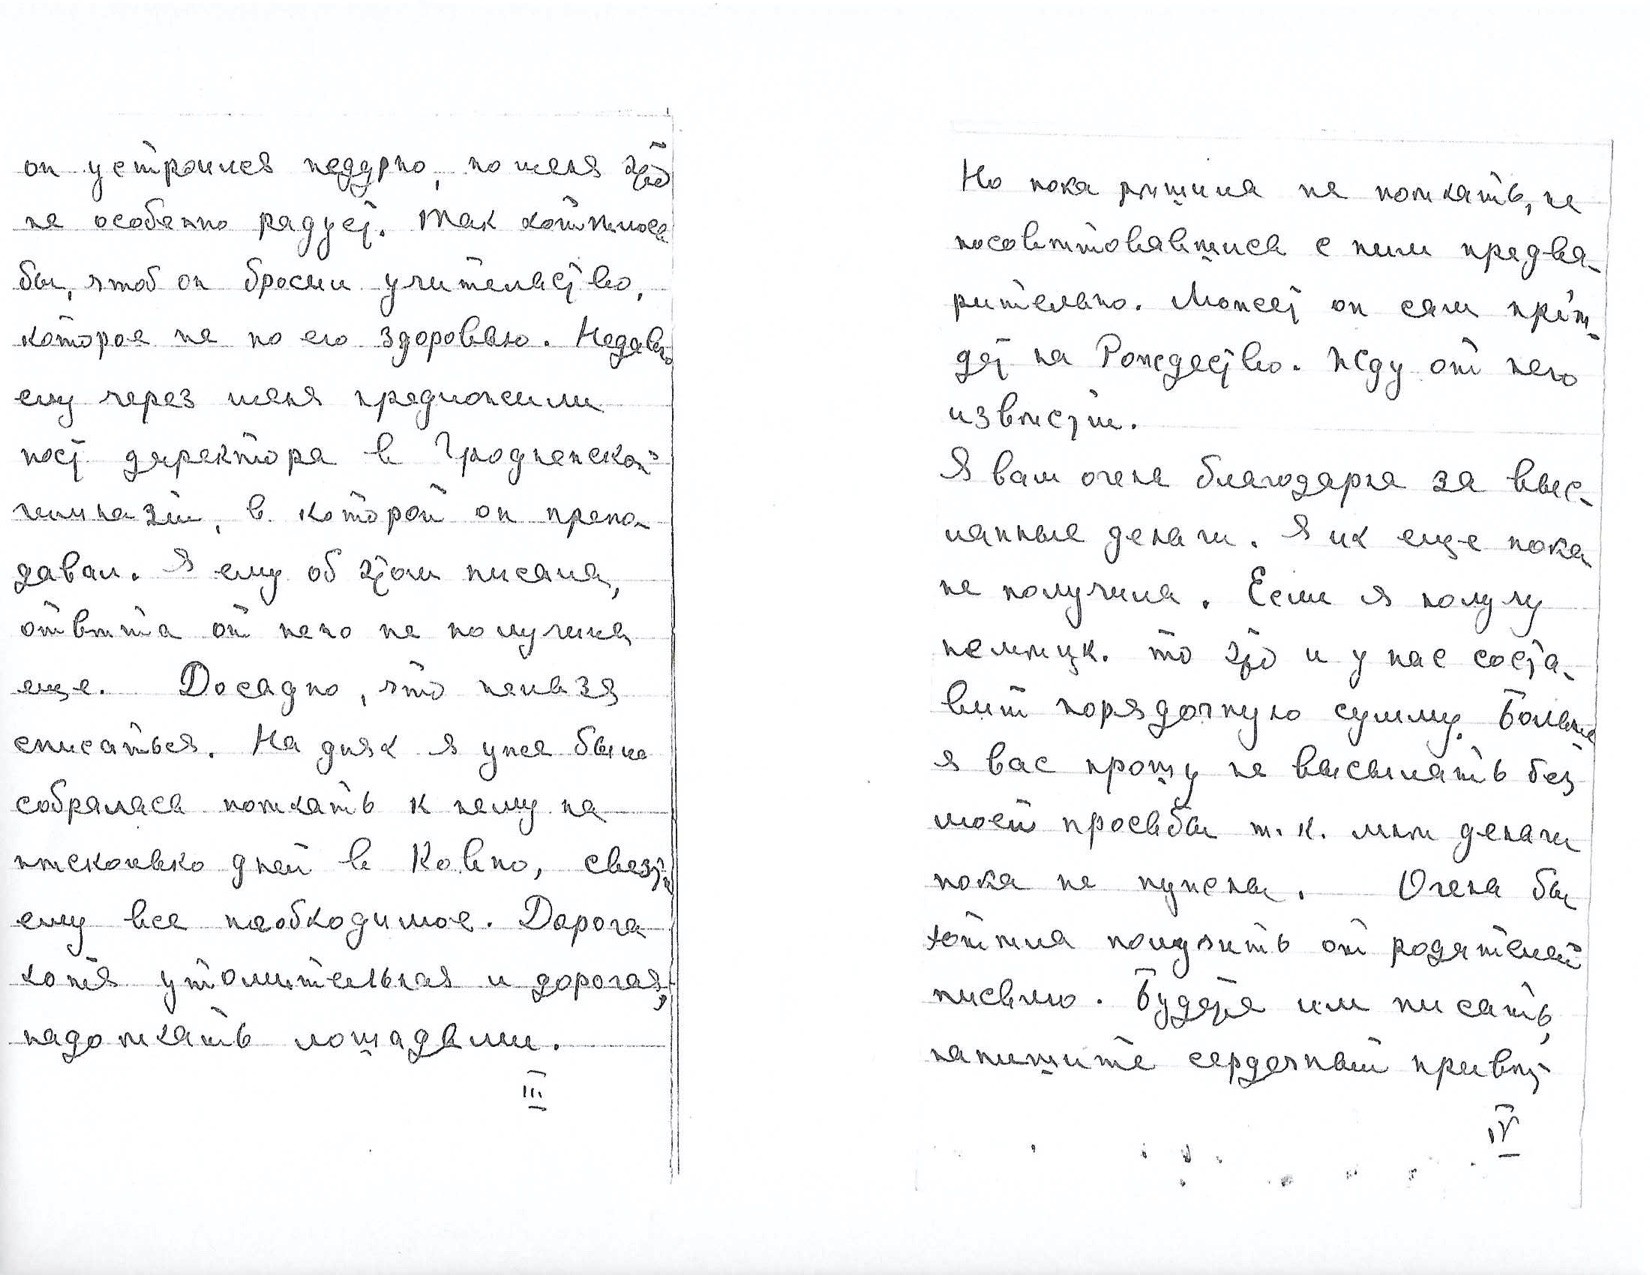 он устроился недурно, но меня это
не особенно радует. Так хотѣлось
бы, чтоб он бросил учительство,
которое не по его здоровью. Недавно
ему через меня предложили
пост директора в Гродненской
гимназіи, в которой он препо-
давал. Я ему об этом писала,
отвѣта от него не получила
еще. Досадно, что нельзя
списаться. На днях я уже было
собралась поѣхать к нему на
нѣсколько дней в Ковно, свезти
ему все необходимое. Дорога
хотя утомительная и дорогая,
надо ѣхать лошадьми.
III
Но пока рѣшила не поѣхать, не
посовѣтовавшись с ним предва-
рительно. Может он сам пріѣ-
дет на Рождество. Жду от него
извѣстій.
Я вам очень благодарна за выс-
ланные деньги. Я их еще пока
не получила. Если я получу
нѣмецк. то это и у нас соста-
вит порядочную сумму. Больше
я вас прошу не высылать без
моей просьбы т. к. мнѣ деньги
пока не нужны. Очень бы
хотѣла получить от родителей
письмо. Будете им писать,
напишите сердечный привѣт
IV